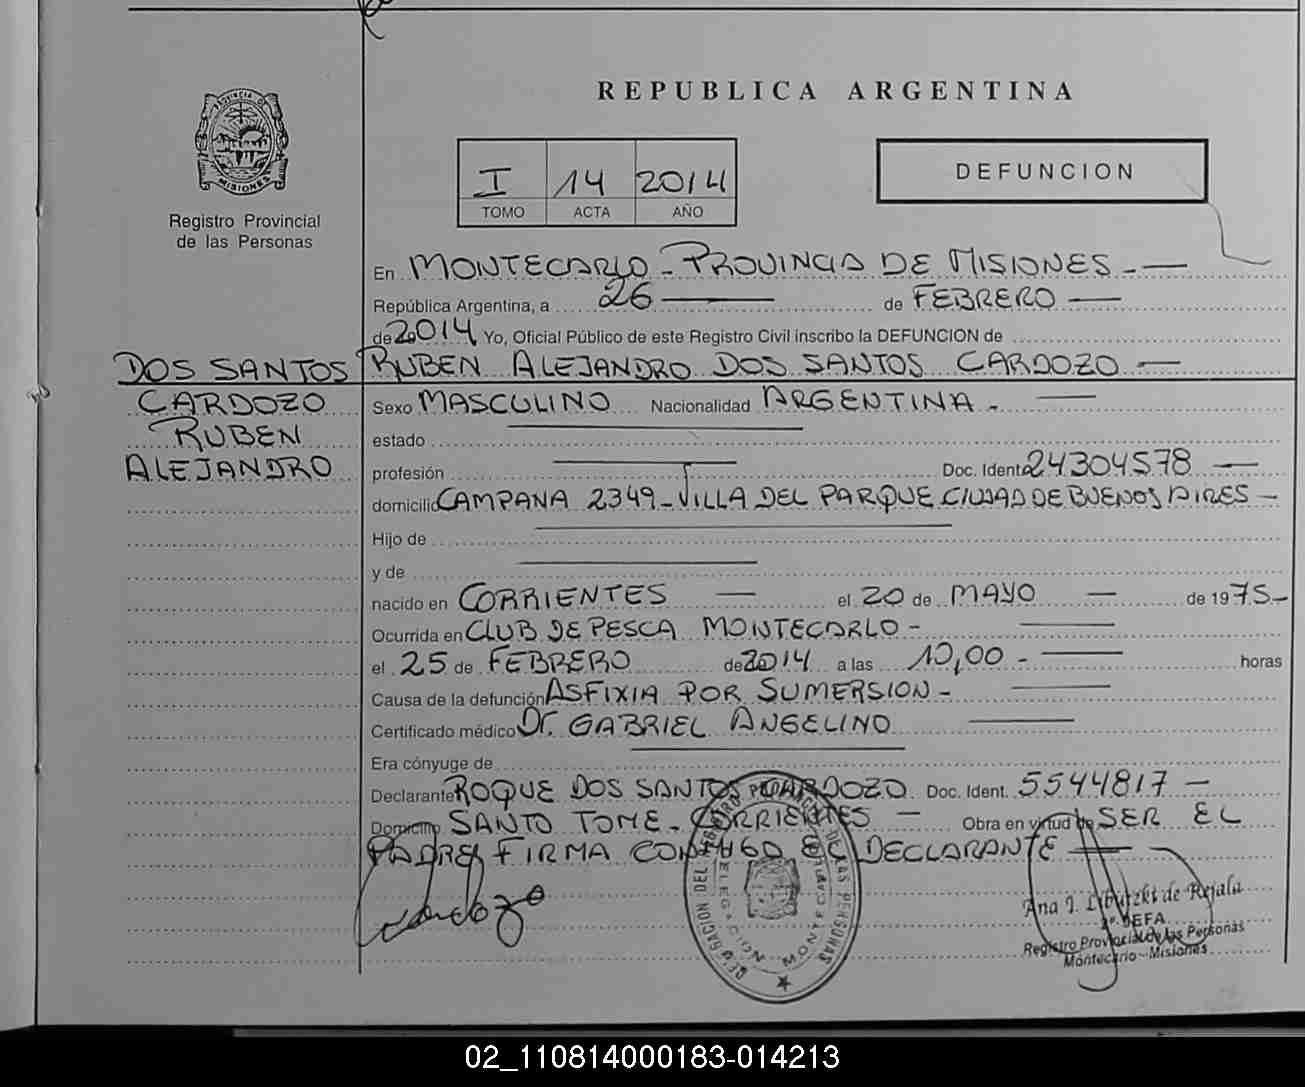 REPUBLICA ARGENTINA
PROVINCIA DE
MISIONES
Registro Provincial
de las Personas
I 14 2014
TOMO ACTA AÑO
DEFUNCION
En MONTECARLO - PROVINCIA DE MISIONES - —
República Argentina, a 26 — de FEBRERO —
de 2014 Yo, Oficial Público de este Registro Civil inscribo la DEFUNCION de
DOS SANTOS RUBEN ALEJANDRO DOS SANTOS CARDOZO —
CARDOZO Sexo MASCULINO Nacionalidad ARGENTINA - —
RUBEN estado —
ALEJANDRO profesión — Doc. Ident. 24304578 —
domicilio CAMPANA 2349 - VILLA DEL PARQUE CIUDAD DE BUENOS AIRES —
Hijo de —
y de —
nacido en CORRIENTES — el 20 de MAYO — de 1975 -
Ocurrida en CLUB DE PESCA MONTECARLO - —
el 25 de FEBRERO de 2014 a las 10,00 - — horas
Causa de la defunción ASFIXIA POR SUMERSION - —
Certificado médico Dr. GABRIEL ANGELINO —
Era cónyuge de —
Declarante ROQUE DOS SANTOS CARDOZO Doc. Ident. 5544817 —
Domicilio SANTO TOME - CORRIENTES — Obra en virtud de SER EL
PADRE, FIRMA CONMIGO EL DECLARANTE —
Cardozo
DELEGACION DEL REGISTRO PROVINCIAL DE LAS PERSONAS
DELEGACION MONTECARLO
Ana I. de Rejala
JEFA
Registro Provincial de las Personas
Montecarlo - Misiones
02_110814000183-014213